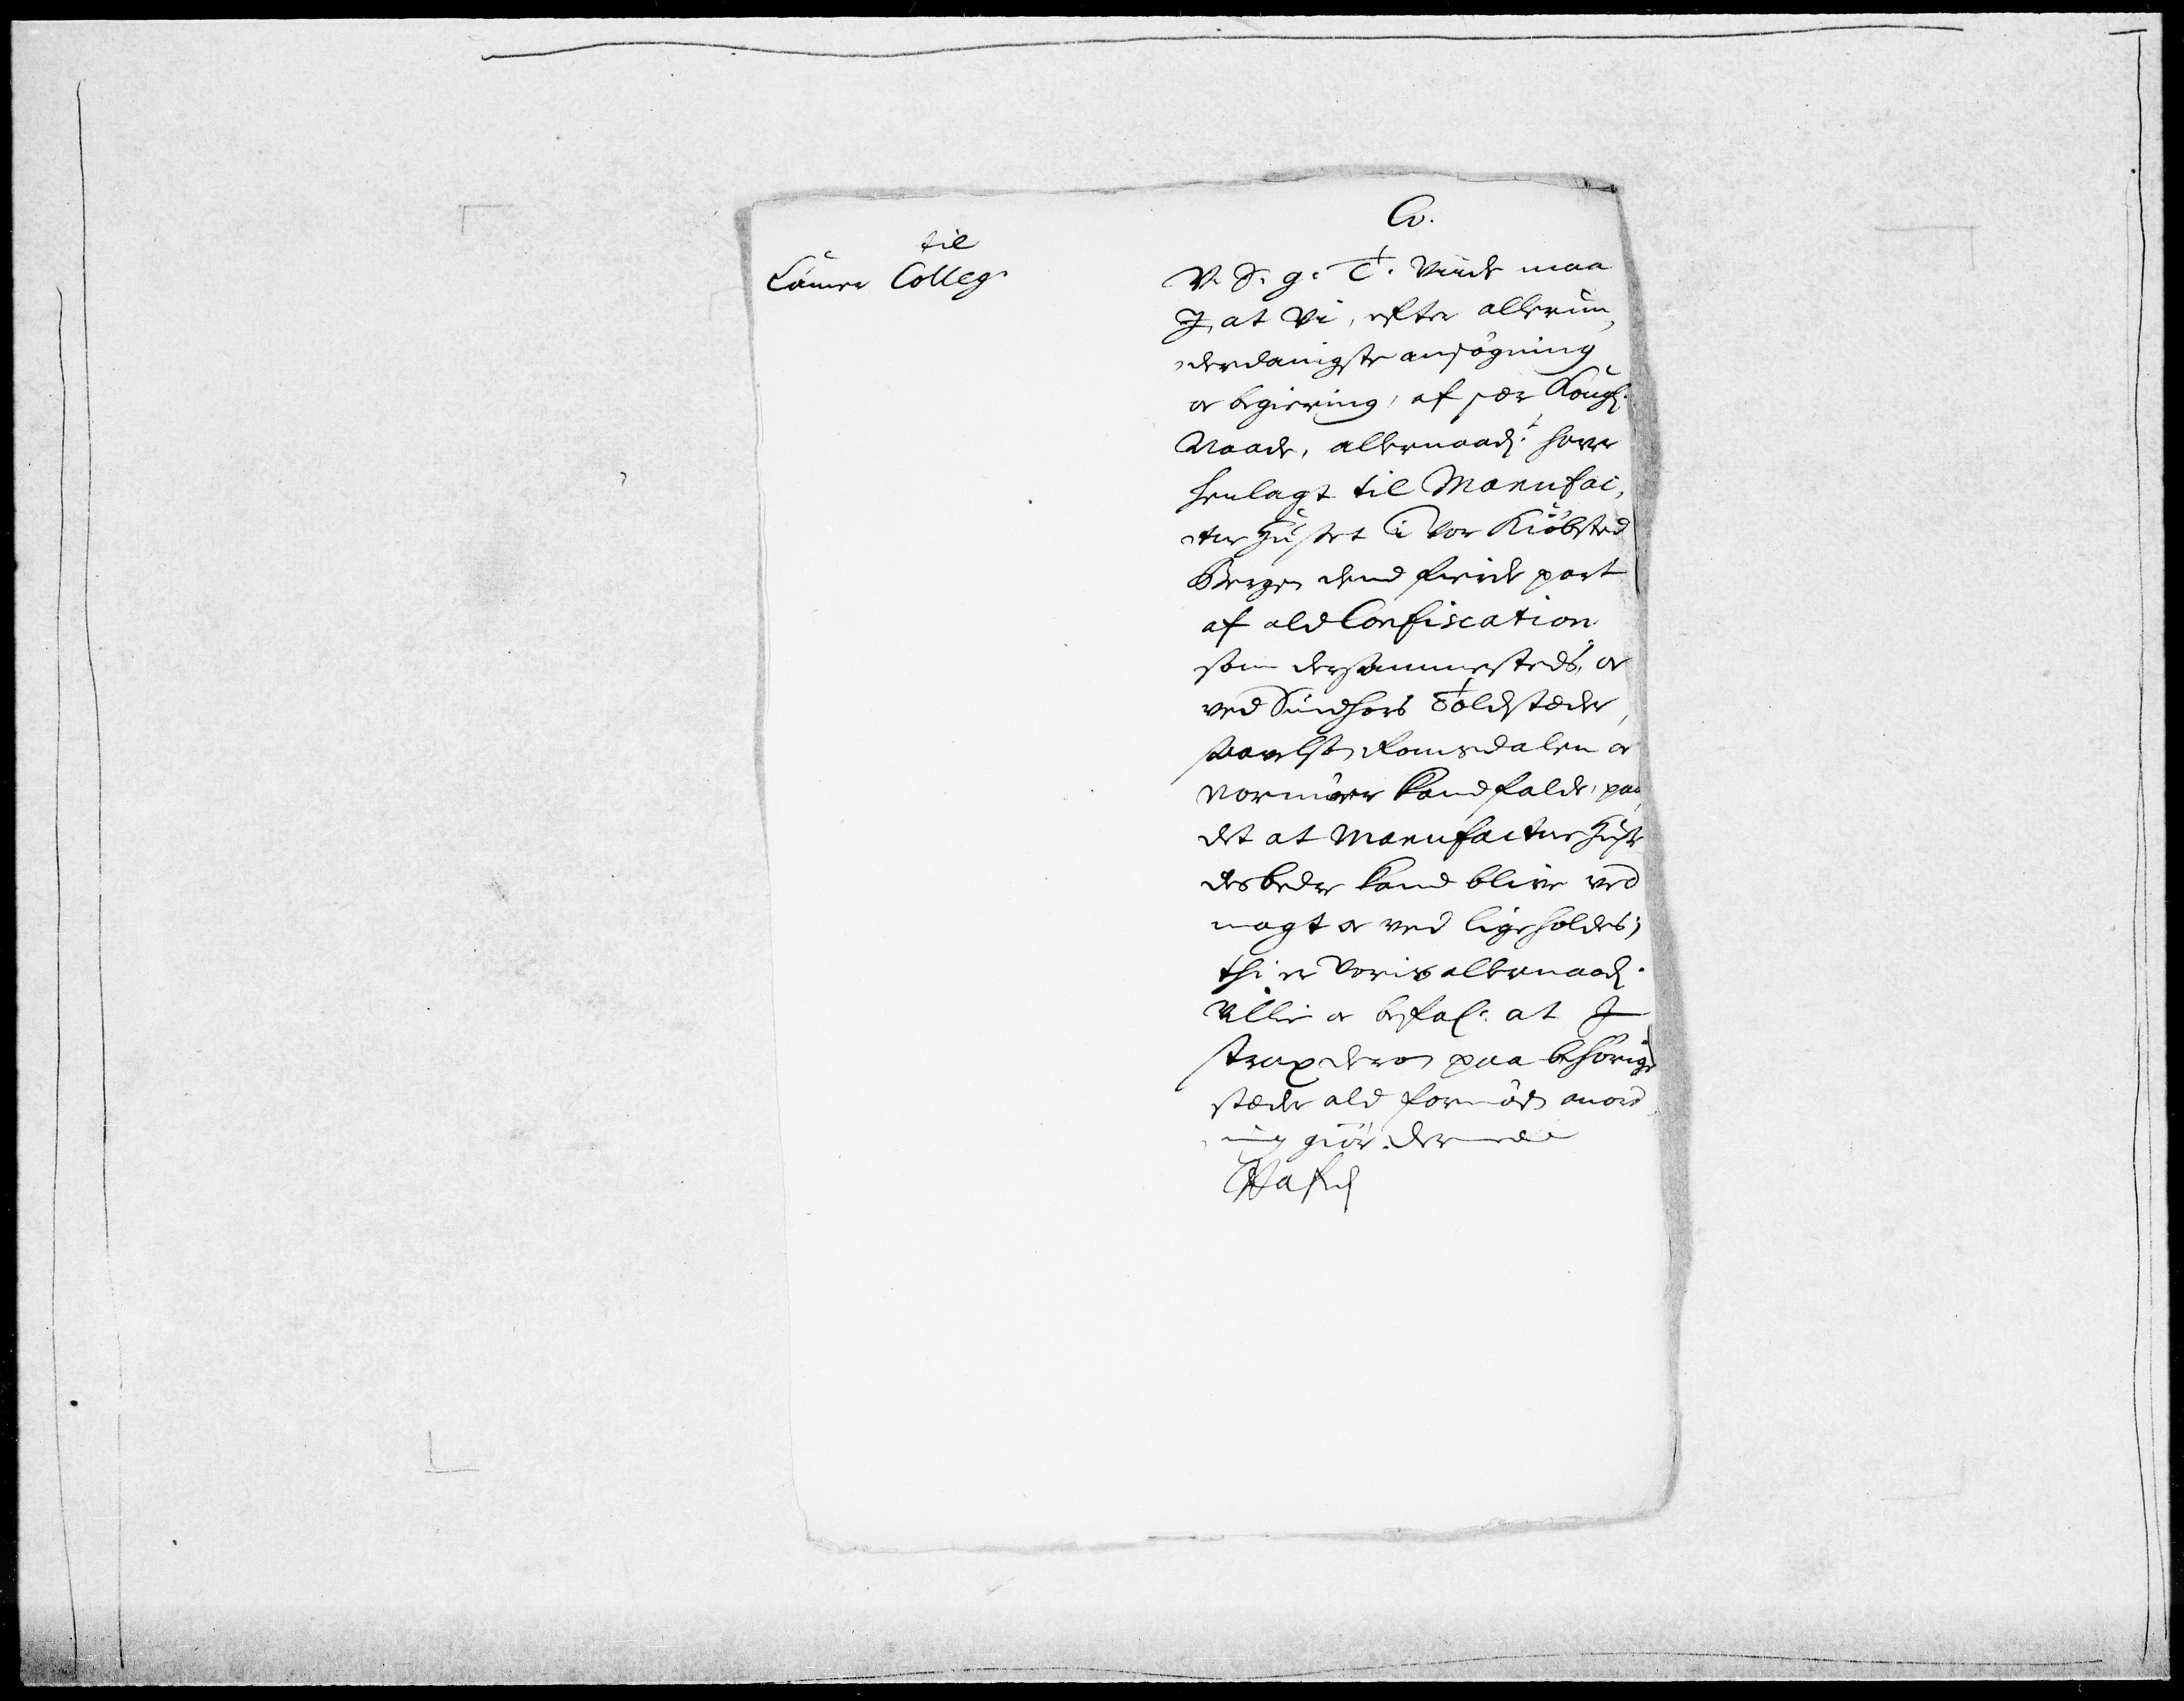 C5.
til
Camer Colleg.
V. S. g. T. Viide maa
I, at Vi, efter allerun,
derdanigste ansøgning
oc begiering, af sær Kongl.
Naade, allernaadt. hafve
henlagt til Manufac,
tur Huuset i vor Kiöbsted
Bergen dend fierde part
af ald Confiscation
som dersammesteds, oc
ved Sundfiors Toldstæder,
saavelsom Romsdalen oc
Normöer kand falde, paa
det at Manufactur Huuset
desbedre kand blifve ved
magt oc ved lige holdes;
thi er Voris allernaad.
Villie oc befal. at I
strax derom paa behörige
stæder ald fornöden anord
ning giör. Dermed
Hafn